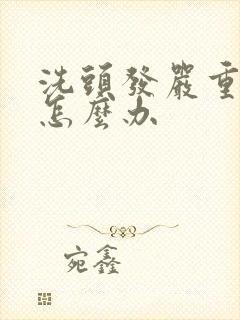 洗頭發嚴重
怎麼办
宛鑫